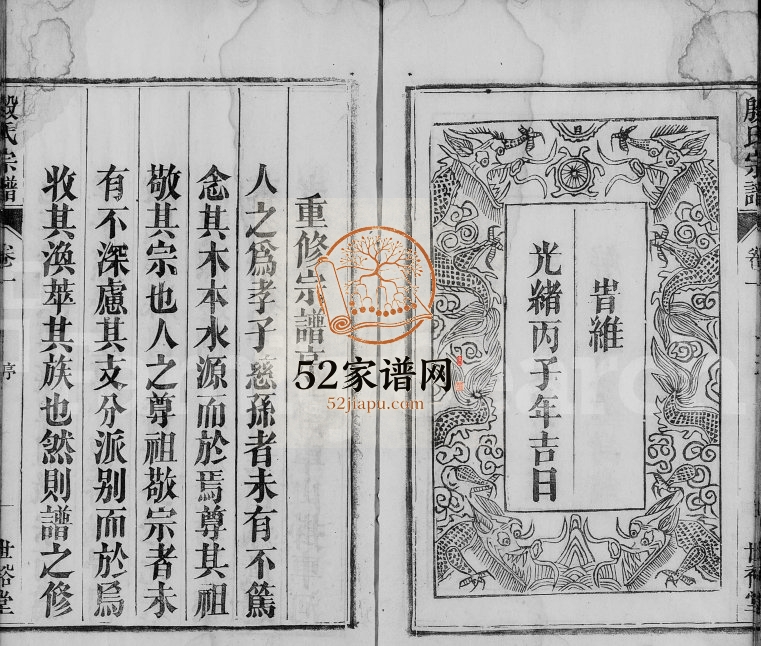 殷氏宗譜
卷一
旹維
光緒丙子年吉日
旦
重修宗譜
人之爲孝子慈孫者未有不篤
念其木本水源而於焉尊其祖
敬其宗也人之尊祖敬宗者未
有不深慮其支分派别而於焉
收其渙萃其族也然則譜之修
殷氏宗譜
卷一
序
一
世裕堂
52家谱网
52jiapu.com